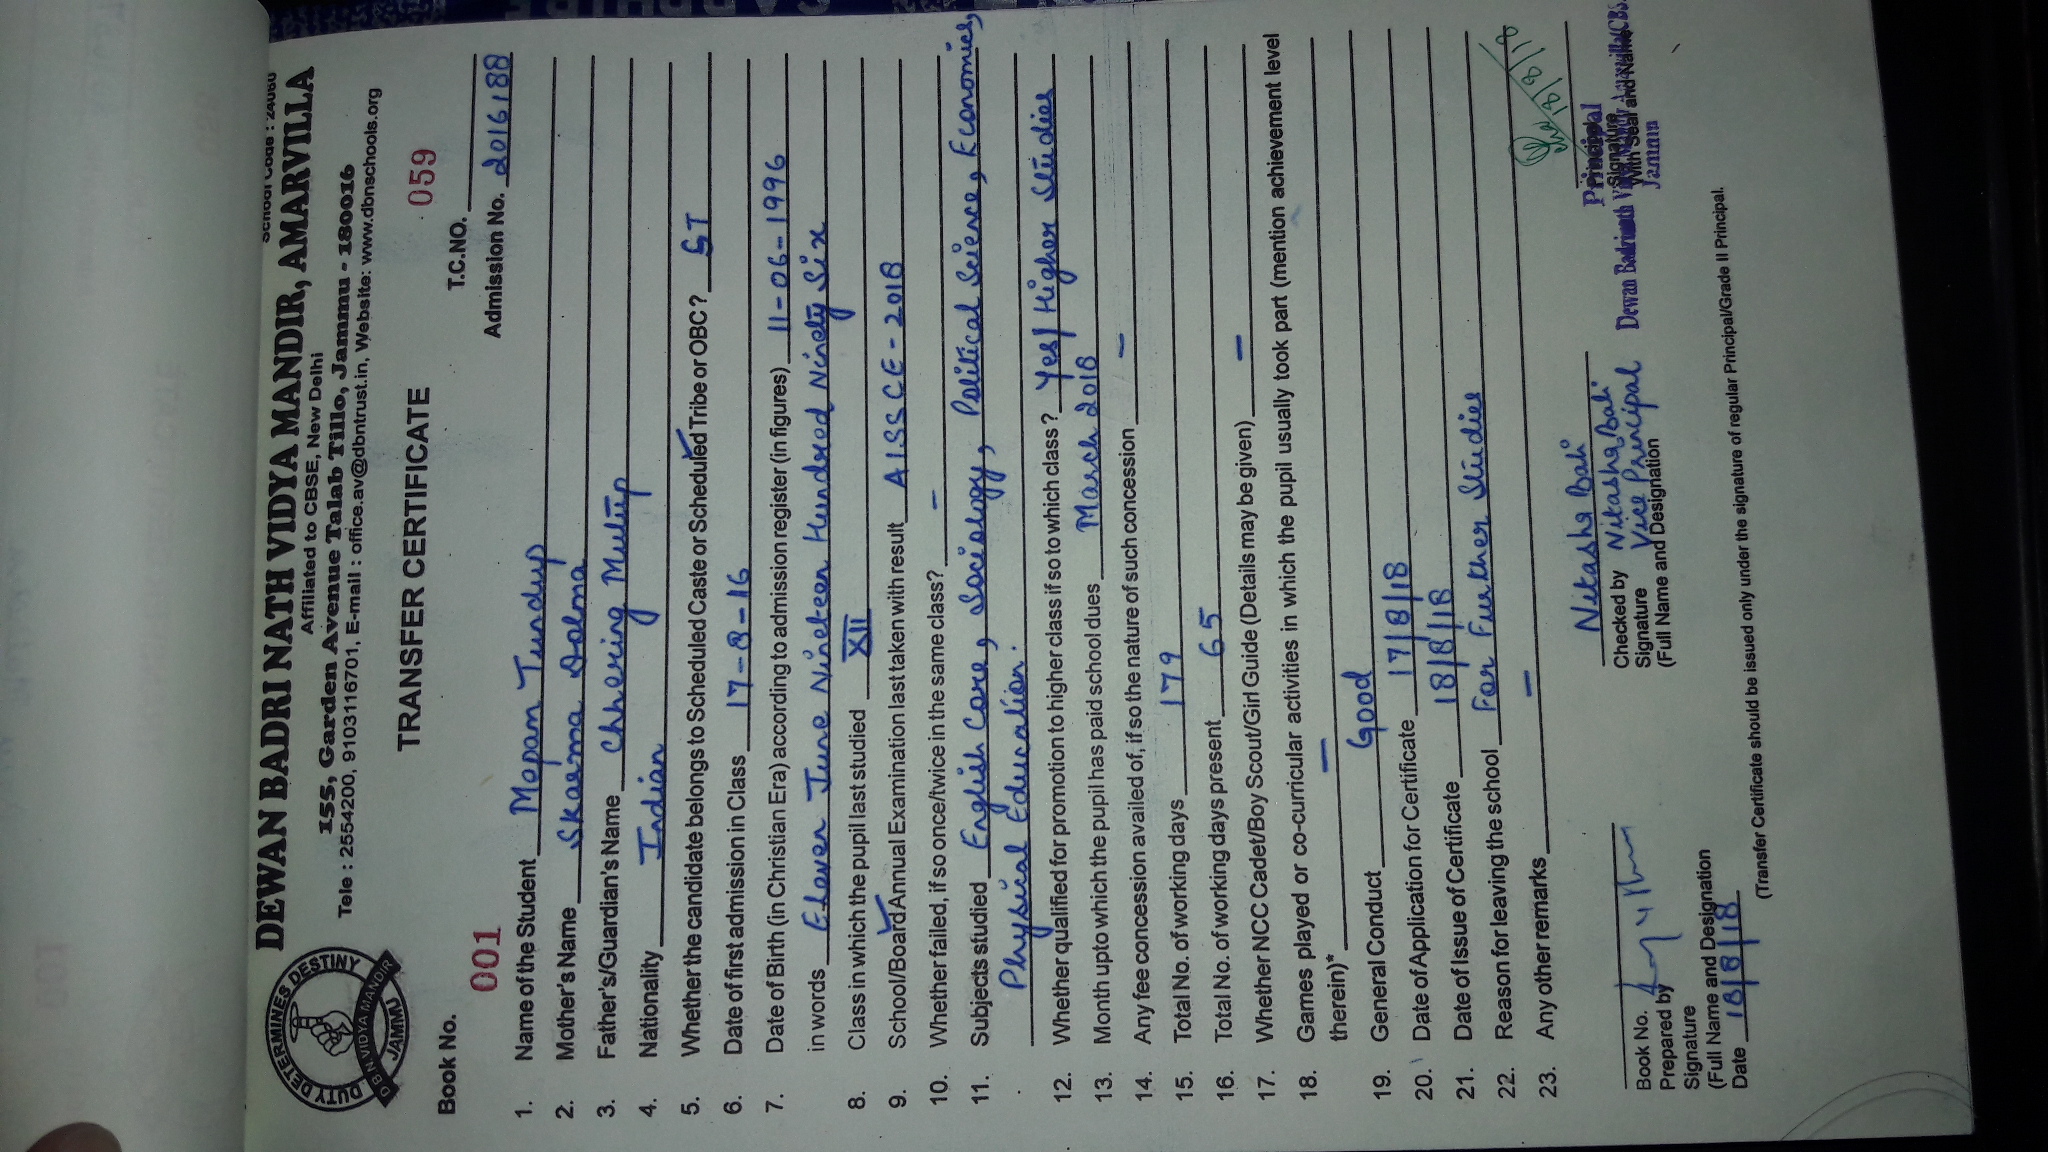 School Code : 24060
DEWAN BADRI NATH VIDYA MANDIR, AMARVILLA
Affiliated to CBSE, New Delhi
155, Garden Avenue Talab Tillo, Jammu - 180016
Tele : 2554200, 9103116701, E-mail : office.av@dbntrust.in, Website: www.dbnschools.org
DUTY DETERMINES DESTINY
D B N VIDYA MANDIR
JAMMU
TRANSFER CERTIFICATE
Book No. 001 T.C.NO. 059
Admission No. 2016188
1. Name of the Student Mopam Tundup
2. Mother's Name Skarma Dolma
3. Father's/Guardian's Name Chhering Mutup
4. Nationality Indian
5. Whether the candidate belongs to Scheduled Caste or Scheduled Tribe or OBC? ST
6. Date of first admission in Class 17-8-16
7. Date of Birth (in Christian Era) according to admission register (in figures) 11-06-1996
in words Eleven June Nineteen Hundred Ninety Six
8. Class in which the pupil last studied XII
9. School/Board Annual Examination last taken with result AISSCE-2018
10. Whether failed, if so once/twice in the same class? -
11. Subjects studied English Core, Sociology, Political Science, Economics,
Physical Education.
12. Whether qualified for promotion to higher class if so to which class? Yes/Higher Studies
13. Month upto which the pupil has paid school dues March 2018
14. Any fee concession availed of, if so the nature of such concession -
15. Total No. of working days 179
16. Total No. of working days present 65
17. Whether NCC Cadet/Boy Scout/Girl Guide (Details may be given) -
18. Games played or co-curricular activities in which the pupil usually took part (mention achievement level
therein)* -
19. General Conduct Good
20. Date of Application for Certificate 17/8/18
21. Date of Issue of Certificate 18/8/18
22. Reason for leaving the school For Further Studies
23. Any other remarks -
18/8/18
Nikasha Bali
Book No.
Prepared by
Signature
(Full Name and Designation
Date 18/8/18
Checked by Nikasha Bali
Signature Vice Principal
(Full Name and Designation
Principal
Signature
With Seal and Name
Principal
Dewan Badrinath
Jammu
(Transfer Certificate should be issued only under the signature of regular Principal/Grade II Principal.